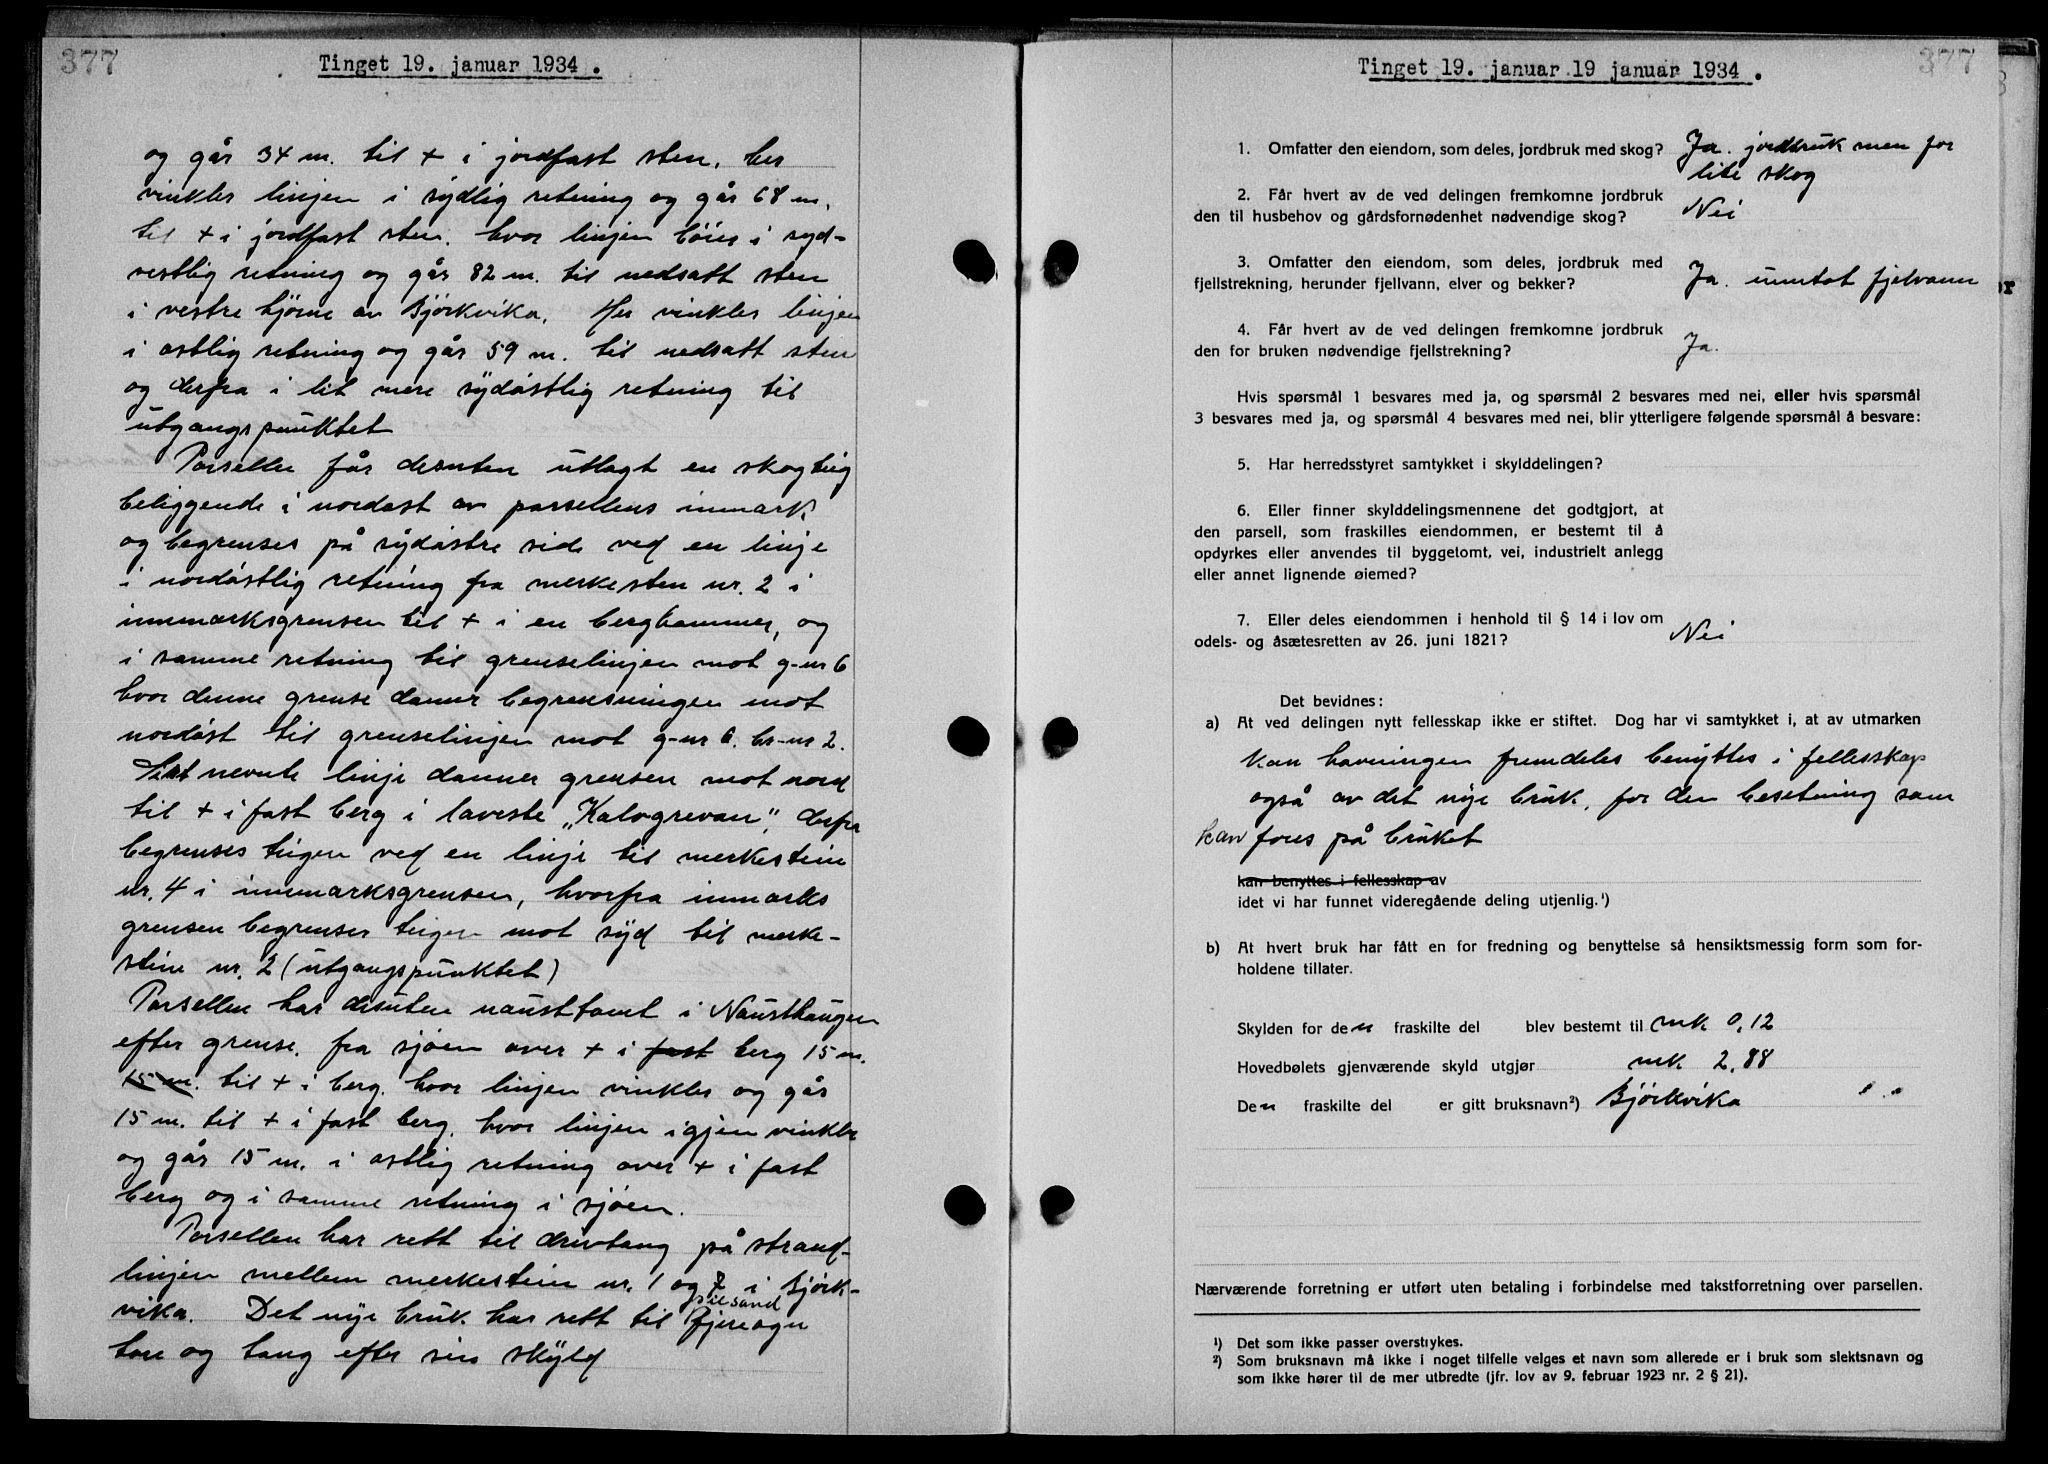 377
Tinget 19. januar 1934.
og går 34 m. til + i jordfast sten. her
vinkles linjen i sydlig retning og går 68 m.
til + i jordfast sten. hvor linjen böier i syd-
vestlig retning og går 82 m. til nedsatt sten
i vestre hjörne av Björkvika. Her vinkles linjen
i østlig retning og går 59 m. til nedsatt sten
og derfra i lit mere sydöstlig retning til
utgangspunktet
Parsellen får desuten utlagt en skogteig
beliggende i nordøst av parsellens inmark
og begrenses på sydöstre side ved en linje
i nordöstlig retning fra merkesten nr. 2 i
inmarksgrensen til + i en berghammer, og
i samme retning til grenselinjen mot g-nr 6
hvor denne grense danner begrensningen mot
nordöst til grenselinjen mot g-nr 6. br-nr 2.
Sist nevnte linje danner grensen mot nord
til + i fast berg i laveste „Kalvgrevan", derfra
begrenses teigen ved en linje til merkestein
nr. 4 i inmarksgrensen, hvorfra inmarks
grensen begrenser teigen mot syd til merke-
stein nr. 2 (utgangspunktet)
Parsellen har desuten nausttomt i Nausthaugen
efter grense. fra sjöen over + i fast berg 15 m.
15 m. til + i berg. hvor linjen vinkles og går
15 m. til + i fast berg. hvor linjen igjen vinkles
og går 15 m. i østlig retning over + i fast
berg og i samme retning i sjöen.
Parsellen har rett til drivtang på strand-
linjen mellem merkestein nr. 1 og 7 i Björk-
vika. Det nye bruk har rett til skjelsand fjereagn
tare og tang efter sin skyld
377
Tinget 19. januar 19 januar 1934.
1. Omfatter den eiendom, som deles, jordbruk med skog? Ja. jordbruk men for
lite skog
2. Får hvert av de ved delingen fremkomne jordbruk
den til husbehov og gårdsfornødenhet nødvendige skog? Nei
3. Omfatter den eiendom, som deles, jordbruk med
fjellstrekning, herunder fjellvann, elver og bekker? Ja. unntat fjelvann
4. Får hvert av de ved delingen fremkomne jordbruk
den for bruken nødvendige fjellstrekning? Ja.
Hvis spørsmål 1 besvares med ja, og spørsmål 2 besvares med nei, eller hvis spørsmål
3 besvares med ja, og spørsmål 4 besvares med nei, blir ytterligere følgende spørsmål å besvare:
5. Har herredsstyret samtykket i skylddelingen?
6. Eller finner skylddelingsmennene det godtgjort, at
den parsell, som fraskilles eiendommen, er bestemt til å
opdyrkes eller anvendes til byggetomt, vei, industrielt anlegg
eller annet lignende øiemed?
7. Eller deles eiendommen i henhold til § 14 i lov om
odels- og åsætesretten av 26. juni 1821? Nei
Det bevidnes:
a) At ved delingen nytt fellesskap ikke er stiftet. Dog har vi samtykket i, at av utmarken
kan havningen fremdeles benyttes i fellesskap
også av det nye bruk, for den besetning som
kan fores på bruket
kan benyttes i fellesskap av
idet vi har funnet videregående deling utjenlig.¹)
b) At hvert bruk har fått en for fredning og benyttelse så hensiktsmessig form som for-
holdene tillater.
Skylden for den fraskilte del blev bestemt til mk 0,12
Hovedbølets gjenværende skyld utgjør mk 2,88
Den fraskilte del er gitt bruksnavn²) Björkvika
Nærværende forretning er utført uten betaling i forbindelse med takstforretning over parsellen.
¹) Det som ikke passer overstrykes.
²) Som bruksnavn må ikke i noget tilfelle velges et navn som allerede er i bruk som slektsnavn og
som ikke hører til de mer utbredte (jfr. lov av 9. februar 1923 nr. 2 § 21).